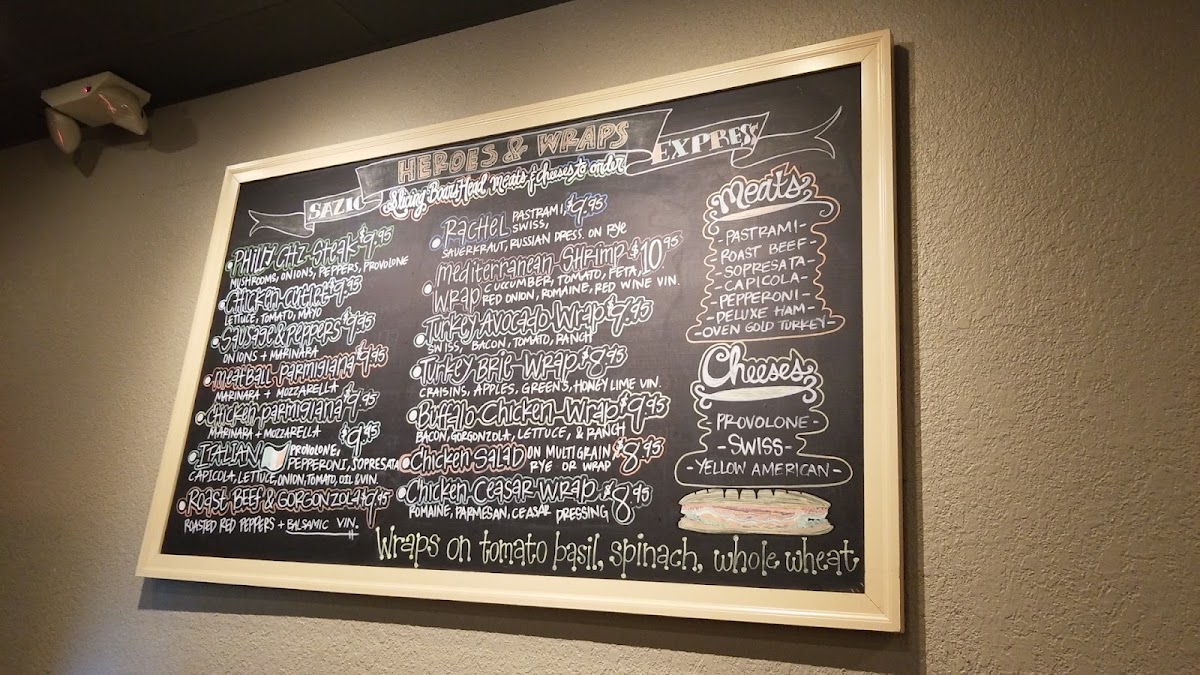 HEROES & WRAPS
SAZIO EXPRESS
Slicing Boars Head meats & cheeses to order
PHILLY CHZ STEAK $9.95
MUSHROOMS, ONIONS, PEPPERS, PROVOLONE
Chicken cutlet $9.95
LETTUCE, TOMATO, MAYO
Sausage & peppers $9.95
ONIONS + MARINARA
Meatball parmigiana $9.95
MARINARA + MOZZARELLA
chicken parmigiana $9.95
MARINARA + MOZZARELLA
ITALIAN $9.95
PROVOLONE,
PEPPERONI, SOPRESATA
CAPICOLA, LETTUCE, ONION, TOMATO, OIL & VIN.
ROAST BEEF & GORGONZOLA $9.95
ROASTED RED PEPPERS + BALSAMIC VIN.
RACHEL PASTRAMI, $9.95
SWISS,
SAUERKRAUT, RUSSIAN DRESS. ON RYE
mediterranean SHRIMP $10.95
Wrap CUCCUMBER, TOMATO, FETA,
RED ONION, ROMAINE, RED WINE VIN.
Turkey Avocado Wrap $9.95
SWISS, BACON, TOMATO, RANCH
Turkey Brie Wrap $8.95
CRAISINS, APPLES, GREENS, HONEY LIME VIN.
Buffalo Chicken Wrap $9.95
BACON, GORGONZOLA, LETTUCE, & RANCH
Chicken Salad ON MULTIGRAIN $8.95
RYE OR WRAP
Chicken Ceasar Wrap $8.95
ROMAINE, PARMESAN, CEASAR DRESSING
Wraps on tomato basil, spinach, whole wheat
Meats
- PASTRAMI -
ROAST BEEF -
- SOPRESATA -
- CAPICOLA -
- PEPPERONI -
- DELUXE HAM -
- OVEN GOLD TURKEY -
Cheeses
PROVOLONE -
- SWISS -
- YELLOW AMERICAN -